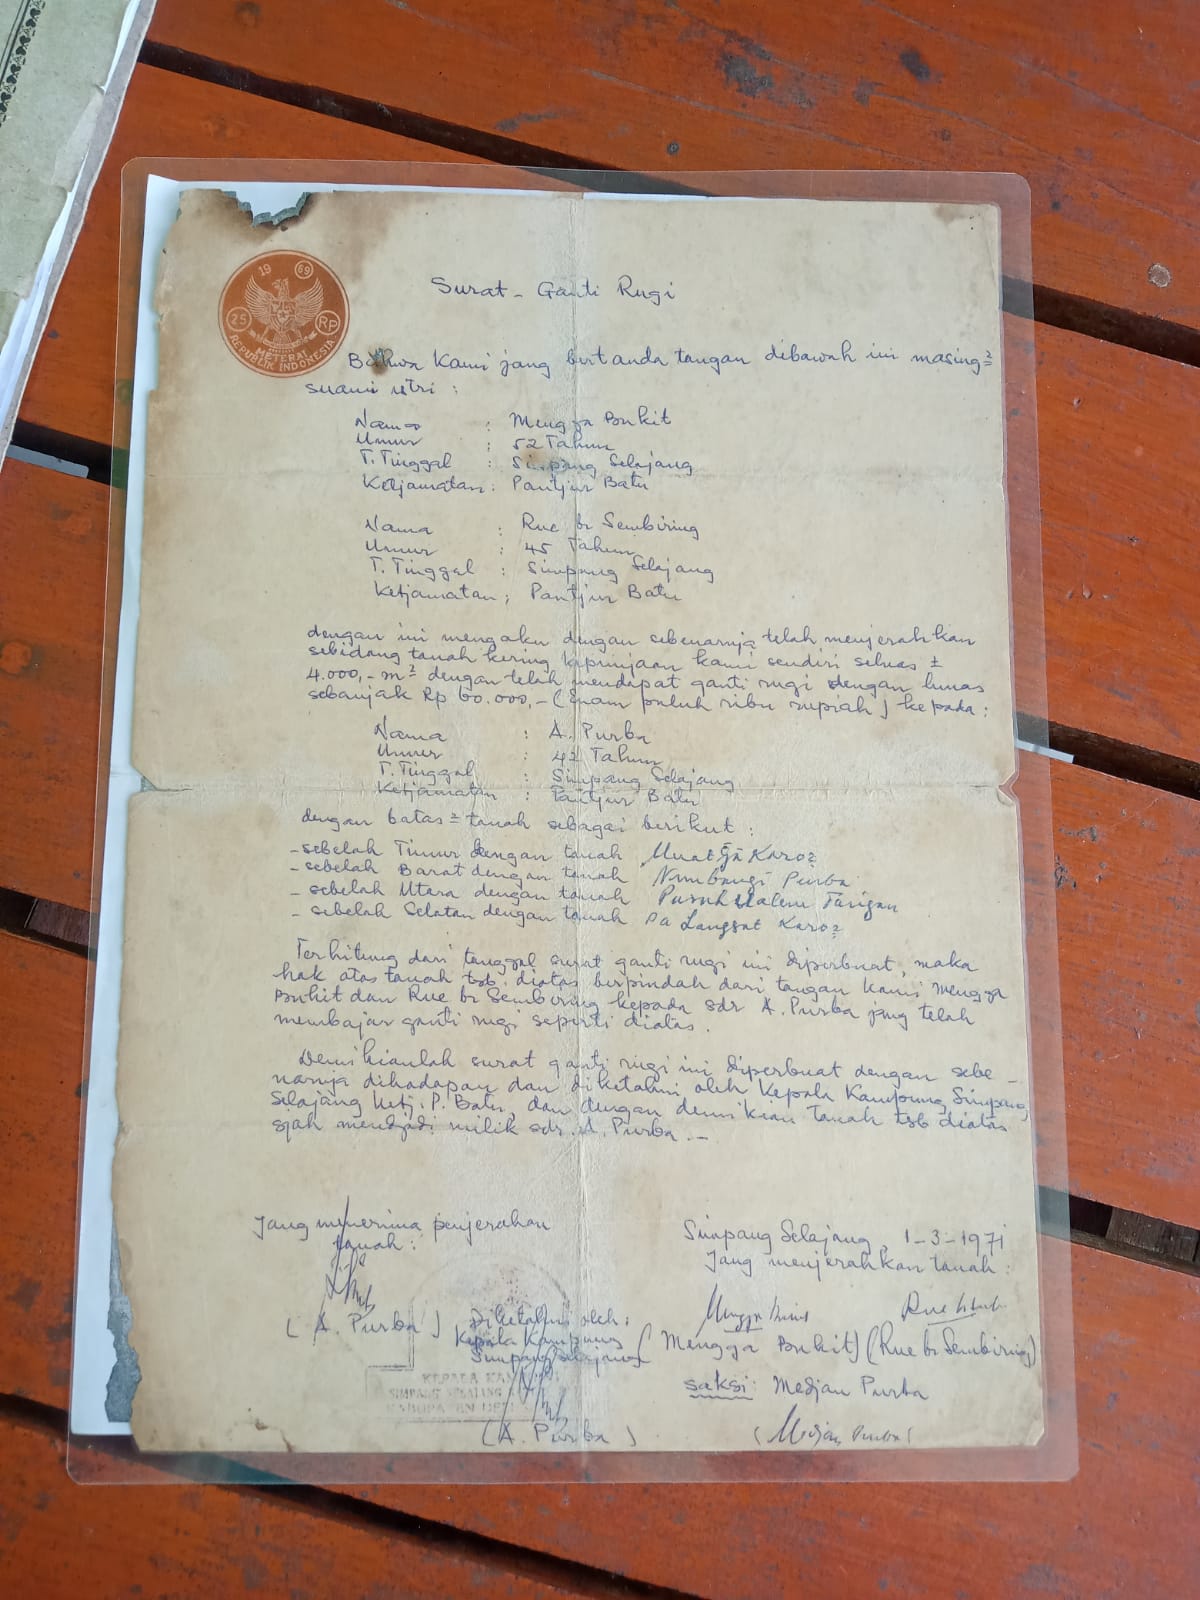 19 69
25 RP
METERAI
REPUBLIK INDONESIA
Surat - Ganti Rugi
Bahwa Kami jang bertanda tangan dibawah ini masing²
suami istri :
Nama : Mengga Bukit
Umur : 52 Tahun
T. Tinggal : Simpang Selajang
Ketjamatan : Pantjur Batu
Nama : Rue br Sembiring
Umur : 45 Tahun
T. Tinggal : Simpang Selajang
Ketjamatan ; Pantjur Batu
dengan ini mengaku dengan sebenarnja telah menjerahkan
sebidang tanah kering kepunjaan kami sendiri seluas ±
4.000,- m² dengan telah mendapat ganti rugi dengan lunas
sebanjak Rp 60.000,- (Enam puluh ribu rupiah) kepada :
Nama : A. Purba
Umur : 42 Tahun
T. Tinggal : Simpang Selajang
Ketjamatan : Pantjur Batu
dengan batas² tanah sebagai berikut :
- sebelah Timur dengan tanah Karo²
- sebelah Barat dengan tanah Numbangi Purba
- sebelah Utara dengan tanah Tarigan
- sebelah Selatan dengan tanah Pa Langsat Karo²
Terhitung dari tanggal surat ganti rugi ini diperbuat, maka
hak atas tanah tsb. diatas berpindah dari tangan kami Mengga
Bukit dan Rue br Sembiring kepada sdr A. Purba jang telah
membajar ganti rugi seperti diatas.
Demikianlah surat ganti rugi ini diperbuat dengan sebe -
narnja dihadapan dan diketahui oleh Kepala Kampung Simpang
Selajang Ketj. P. Batu, dan dengan demikian tanah tsb diatas
sjah mendjadi milik sdr. A. Purba. -
Jang menerima penjerahan
tanah :
Simpang Selajang, 1-3-1971
Jang menjerahkan tanah :
(A. Purba)
Diketahui oleh :
Kepala Kampung
Simpang Selajang
(Mengga Bukit) (Rue br Sembiring)
saksi: Medjan Purba
KEPALA
SIMPANG
(A. Purba)
(Medjan Purba)